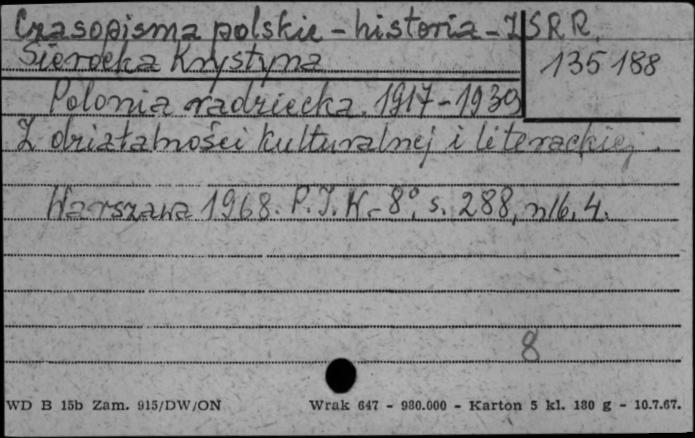 Czasopisma polskie - historia - ZSRR.
Sierocka Krystyna
135188
Polonia radziecka. 1917-1939
Z działalności kulturalnej i literackiej.
Warszawa 1968. P.I.W. - 8°, s. 288, nlb. 4.
8
WD B 15b Zam. 915/DW/ON Wrak 647 - 980.000 - Karton 5 kl. 180 g - 10.7.67.